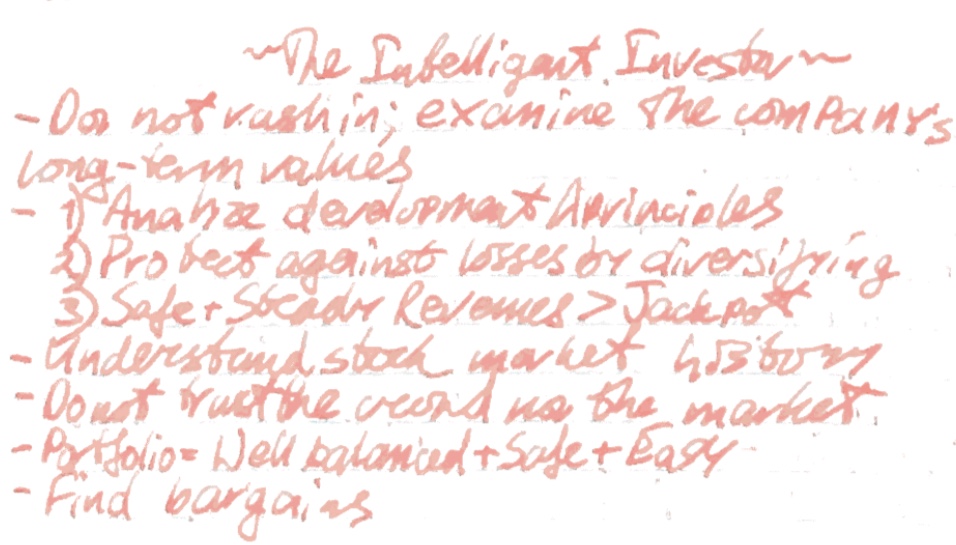 ~The Intelligent Investor~
- Do not rush in; examine the company's
long-term values
- 1) Analize development & principles
2) Protect against losses by diversifying
3) Safe + Steady Revenues > Jackpot
- Understand stock market history
- Do not trust the crowd nor the market
- Portfolio = Well balanced + Safe + Easy
- Find bargains